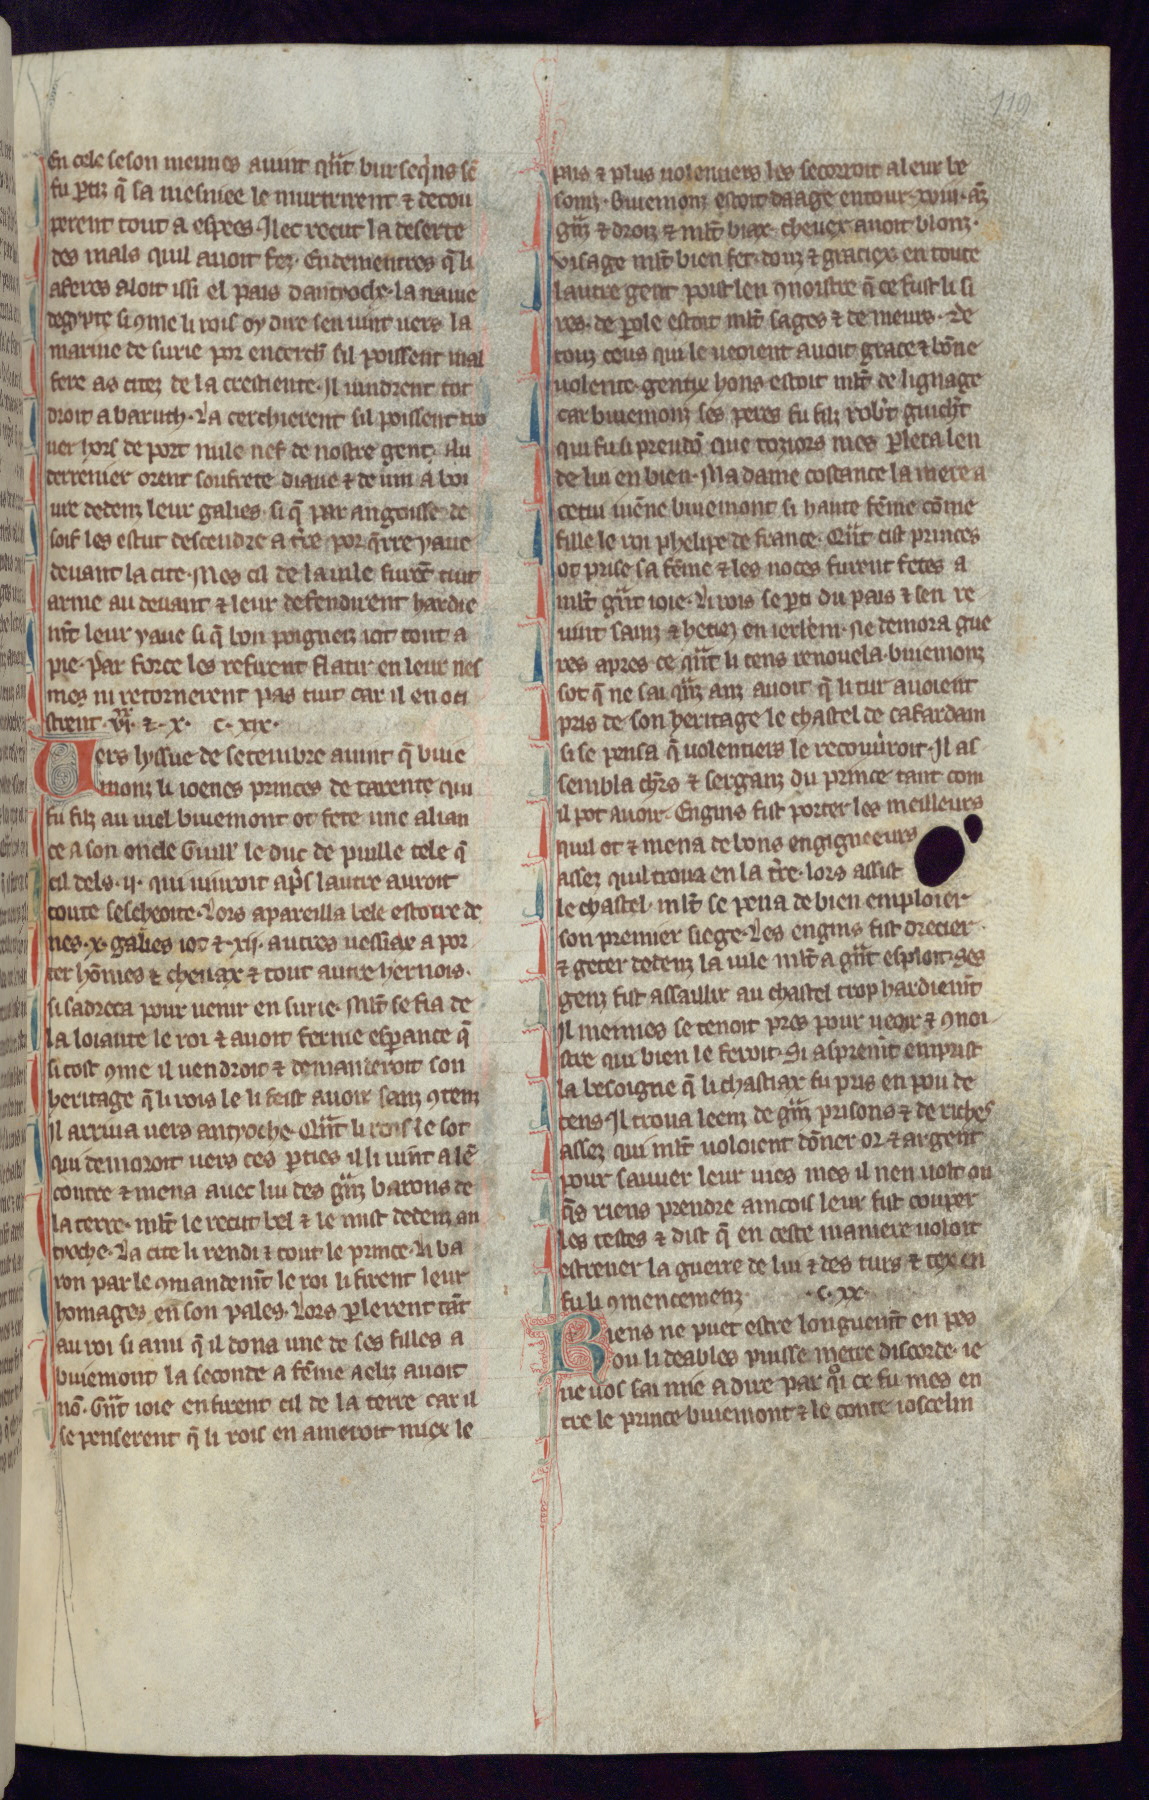 119
En cele seson meimes auint qñt bursequins se
fu ꝑtiz q̃ sa mesniee le murtrirent ⁊ decou
perent tout a espees. Ilec recut la deserte
des mals quil auoit fez. Endementres q̃ li
aferes aloit issi el pais dantioche. la nauie
degypte si ꝯme li rois oy dire sen uint uers la
marine de surie por encerch̃ sil poissent mal
fere as citez de la crestiente. Il uindrent tot
droit a baruth. La cerchierent sil poissent tro
uer hors de port nule nef de nostre gent. Au
derrenier orent soufrete diaue ⁊ de uin a boi
ure dedenz leur galies. si q̃ par angoisse de
soif les estut descendre a tr̃e por q̃rre yaue
deuant la cite. Mes cil de la uile furẽt tuit
arme au deuant ⁊ leur defendirent hardie
mt̃ leur yaue si q̃ bon poigneiz iot tout a
pie. Par force les refirent flatir en leur nes
mes ni retornerent pas tuit car il en oci
strent .vıͯͯ. ⁊ .x. c. xix.
Uers lyssue de setembre auint q̃ buie
monz li ioenes princes de tarente qui
fu filz au uiel buiemont ot fete une alian
ce a son oncle Guill̃ le duc de puille tele q̃
cil dels .ij. qui uiuroit ap̃s lautre auroit
toute sescheoite. Lors apareilla bele estoire de
nes .x. galies iot ⁊ .xij. autres uessiax a por
ter hõmes ⁊ cheuax ⁊ tout autre hernois.
si sadreca pour uenir en surie. Ml̃t se fia de
la loiaute le roi ⁊ auoit ferme esꝑance q̃
si tost ꝯme il uendroit ⁊ demanderoit son
heritage q̃ li rois le li feist auoir sanz ꝯtenz
Il arriua uers antyoche. Qñt li rois le sot
qui demoroit uers ces ꝑties il li uint a lẽ
contre ⁊ mena auec lui des gñz barons de
la terre. ml̃t le recut bel ⁊ le mist dedenz an
tyoche. La cite li rendi ⁊ tout le prince. Li ba
ron par le ꝯmandemt̃ le roi li firent leur
homages en son pales. Lors ꝑlerent tãt
au roi si ami q̃ il dona une de ses filles a
buiemont la seconde a fẽme aeliz auoit
nõ. Gñt ioie en firent cil de la terre car il
se penserent q̃ li rois en ameroit miex le
pais ⁊ plus uolentiers les secorroit a leur be
soinz. Buiemonz estoit daage entour .xviii. anz
gñz ⁊ droiz ⁊ ml̃t biax. cheuex auoit blonz.
visage ml̃t bien fet. douz ⁊ graciex en toute
lautre gent poist len ꝯnoistre q̃ ce fust li si
res. de ꝑole estoit ml̃t sages ⁊ de meurs. De
touz ceus qui le ueoient auoit grace ⁊ bõne
uolente. gentix hons estoit ml̃t de lignage
car buiemonz ses peres fu filz rob̃t guich̃t
qui fu si preudõ que toziors mes ꝑlera len
de lui en bien. Ma dame costance la mere a
cetui iuẽne buiemont si haute fẽme cõme
fille le roi phelipe de france. Qñt cist princes
ot prise sa fẽme ⁊ les noces furent fetes a
ml̃t gñt ioie. Li rois se ꝑti du pais ⁊ sen re
uint sainz ⁊ hetiez en ierlem̃. Ne demora gue
res apres ce qñt li tens renouela. buiemonz
sot q̃ ne sai qñz anz auoit q̃ li tur auoient
pris de son heritage le chastel de cafardam
si se pensa q̃ uolentiers le recouũroit. Il as
sembla ch̃rs ⁊ serganz du prince tant com
il pot auoir. Engins fist porter les meilleurs
quil ot ⁊ mena de bons engigneeurs
assez quil troua en la tr̃e. lors assist
le chastel. ml̃t se pena de bien emploier
son premier siege. Les engins fist drecier
⁊ geter dedenz la uile ml̃t a gñt esploit. Ses
genz fist assaillir au chastel trop hardiemt̃
Il meimes se tenoit pres pour ueoir ⁊ ꝯnoi
stre qui bien le feroit. Si aspremt̃ emprist
la besoigne q̃ li chastiax fu pris en pou de
tens. Il troua leenz de gñz prisons ⁊ de riches
assez qui ml̃t uoloient dõner or ⁊ argent
pour sauuer leur uies mes il nen uolt on
q̃s riens prendre aincois leur fist couper
les testes ⁊ dist q̃ en ceste maniere uoloit
estreuer la guerre de lui ⁊ des turs ⁊ tex en
fu li ꝯmencemenz .c. xx.
Riens ne puet estre longuemt̃ en pes
ou li deables puisse metre discorde. ie
ne uos sai mie a dire par qͦi ce fu mes en
tre le prince buiemont ⁊ le conte ioscelin